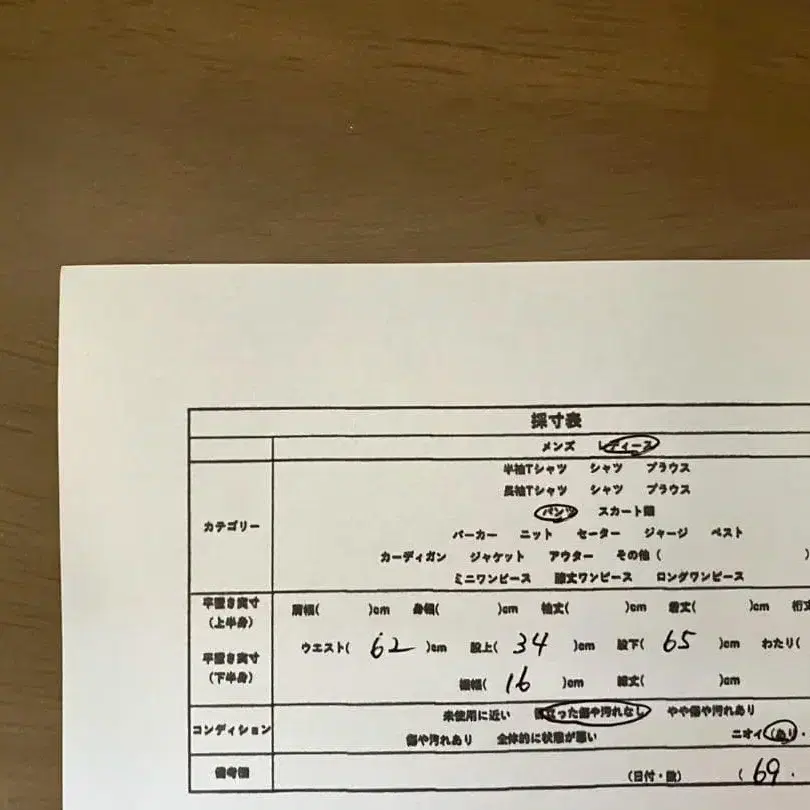 採寸表
メンズ レディース
カテゴリー
半袖Tシャツ シャツ ブラウス
長袖Tシャツ シャツ ブラウス
パンツ スカート類
パーカー ニット セーター ジャージ ベスト
カーディガン ジャケット アウター その他( )
ミニワンピース 膝丈ワンピース ロングワンピース
平置き実寸
(上半身)
肩幅( )cm 身幅( )cm 袖丈( )cm 着丈( )cm 裄丈
平置き実寸
(下半身)
ウエスト( 62 )cm 股上( 34 )cm 股下( 65 )cm わたり(
裾幅( 16 )cm 総丈( )cm
コンディション
未使用に近い 目立った傷や汚れなし やや傷や汚れあり
傷や汚れあり 全体的に状態が悪い ニオイ(あり・
備考欄
(日付・数) ( 69 ・